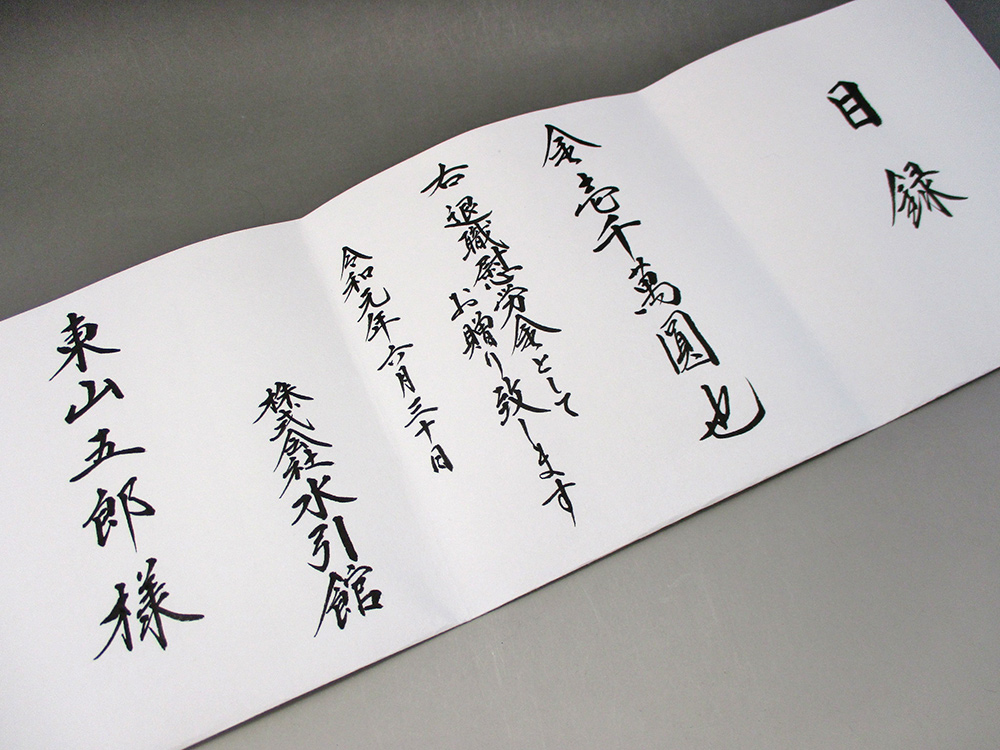 目録
金壱千萬圓也
右退職慰労金として
お贈り致します
令和元年六月三十日
株式会社水引館
東山五郎様